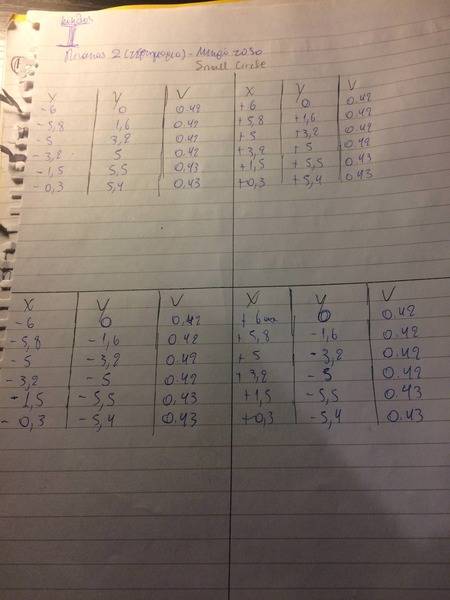 II
Πίνακας 2
Small Circle
X Y V X Y V
-6 0 0.42 +6 0 0.42
-5,8 1,6 0.42 +5,8 +1,6 0.42
-5 3,2 0.42 +5 +3,2 0.42
-3,2 5 0.42 +3,2 +5 0.42
-1,5 5,5 0.43 +1,5 +5,5 0.43
-0,3 5,4 0.43 +0,3 +5,4 0.43
X Y V X Y V
-6 0 0.42 +6 0 0.42
-5,8 -1,6 0.42 +5,8 -1,6 0.42
-5 -3,2 0.42 +5 -3,2 0.42
-3,2 -5 0.42 +3,2 -5 0.42
-1,5 -5,5 0.43 +1,5 -5,5 0.43
-0,3 -5,4 0.43 +0,3 -5,4 0.43